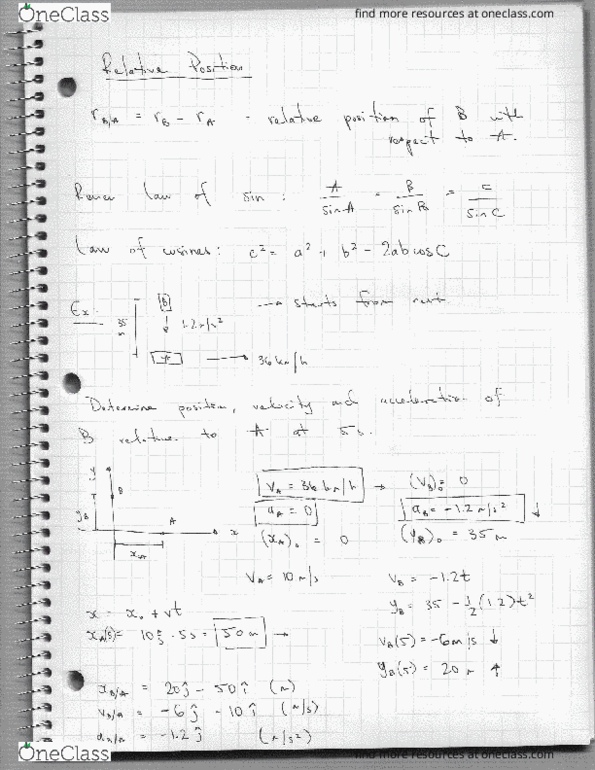 OneClass
find more resources at oneclass.com
Relative Position
r_B/A = r_B - r_A - relative position of B with
respect to A.
Review law of sin: A/sin A = B/sin B = C/sin C
Law of cosines: c² = a² + b² - 2ab cos C
Ex. B 35 m 1.2 m/s² → starts from rest.
A → 36 km/h
Determine position, velocity and acceleration of
B relative to A at 5s.
y
B
y_B
A
x
x_A
V_A = 36 km/h → (V_B)₀ = 0
a_A = 0 a_B = -1.2 m/s² ↓
(x_A)₀ = 0 (y_B)₀ = 35 m
V_A = 10 m/s V_B = -1.2t
x = x₀ + vt y_B = 35 - 1/2(1.2)t²
x_A(5) = 10 · 5s = 50 m → V_B(5) = -6 m/s ↓
y_B(5) = 20 m ↑
= 20ĵ - 50î (m)
V_B/A = -6ĵ - 10î (m/s)
a_B/A = -1.2ĵ (m/s²)
OneClass
find more resources at oneclass.com